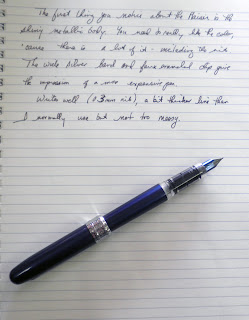 The first thing you notice about the Plaisir is the
shiny metallic body. You need to really like the color,
'cause there is a lot of it - including the nib
The wide silver band and faux enamelled clip give
the impression of a more expensive pen.
Writes well (0.3mm nib), a bit thicker line than
I normally use but not too messy.